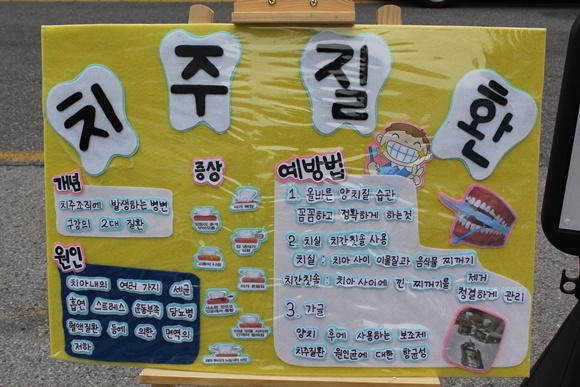 치주질환
개념
치주조직에 발생하는 병변
구강의 2대 질환
원인
치아내의 여러 가지 세균
흡연 스트레스 운동부족 당뇨병
혈액질환 등에 의한 면역의
저하
증상
예방법
1. 올바른 양치질 습관
꼼꼼하고 정확하게 하는것
2. 치실 치간칫솔 사용
치실 : 치아 사이 이물질과 음식물 찌꺼기
치간칫솔 : 치아 사이에 낀 찌꺼기를 제거
청결하게 관리
3. 가글
양치 후에 사용하는 보조제
치주질환 원인균에 대한 항균성